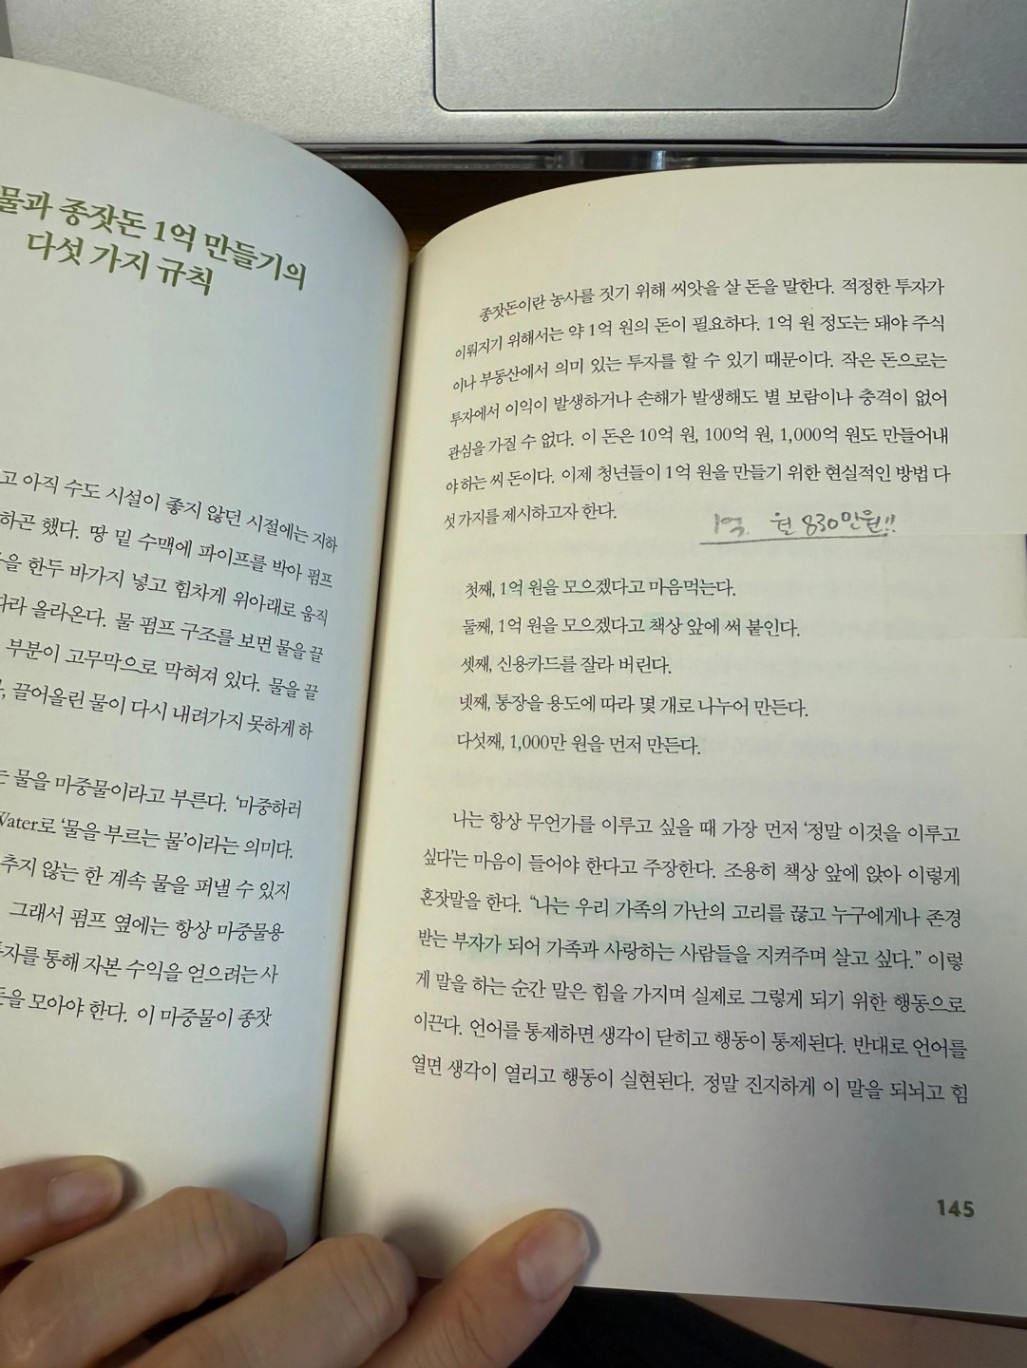 물과 종잣돈 1억 만들기의
다섯 가지 규칙
고 아직 수도 시설이 좋지 않던 시절에는 지하
하곤 했다. 땅 밑 수맥에 파이프를 박아 펌프
을 한두 바가지 넣고 힘차게 위아래로 움직
따라 올라온다. 물 펌프 구조를 보면 물을 끌
부분이 고무막으로 막혀져 있다. 물을 끌
, 끌어올린 물이 다시 내려가지 못하게 하
는 물을 마중물이라고 부른다. ‘마중하러
Water로 ‘물을 부르는 물’이라는 의미다.
추지 않는 한 계속 물을 퍼낼 수 있지
그래서 펌프 옆에는 항상 마중물용
투자를 통해 자본 수익을 얻으려는 사
돈을 모아야 한다. 이 마중물이 종잣
종잣돈이란 농사를 짓기 위해 씨앗을 살 돈을 말한다. 적정한 투자가
이뤄지기 위해서는 약 1억 원의 돈이 필요하다. 1억 원 정도는 돼야 주식
이나 부동산에서 의미 있는 투자를 할 수 있기 때문이다. 작은 돈으로는
투자에서 이익이 발생하거나 손해가 발생해도 별 보람이나 충격이 없어
관심을 가질 수 없다. 이 돈은 10억 원, 100억 원, 1,000억 원도 만들어내
야 하는 씨 돈이다. 이제 청년들이 1억 원을 만들기 위한 현실적인 방법 다
섯 가지를 제시하고자 한다.
1억. 월 830만원!!
첫째, 1억 원을 모으겠다고 마음먹는다.
둘째, 1억 원을 모으겠다고 책상 앞에 써 붙인다.
셋째, 신용카드를 잘라 버린다.
넷째, 통장을 용도에 따라 몇 개로 나누어 만든다.
다섯째, 1,000만 원을 먼저 만든다.
나는 항상 무언가를 이루고 싶을 때 가장 먼저 ‘정말 이것을 이루고
싶다’는 마음이 들어야 한다고 주장한다. 조용히 책상 앞에 앉아 이렇게
혼잣말을 한다. “나는 우리 가족의 가난의 고리를 끊고 누구에게나 존경
받는 부자가 되어 가족과 사랑하는 사람들을 지켜주며 살고 싶다.” 이렇
게 말을 하는 순간 말은 힘을 가지며 실제로 그렇게 되기 위한 행동으로
이끈다. 언어를 통제하면 생각이 닫히고 행동이 통제된다. 반대로 언어를
열면 생각이 열리고 행동이 실현된다. 정말 진지하게 이 말을 되뇌고 힘
145